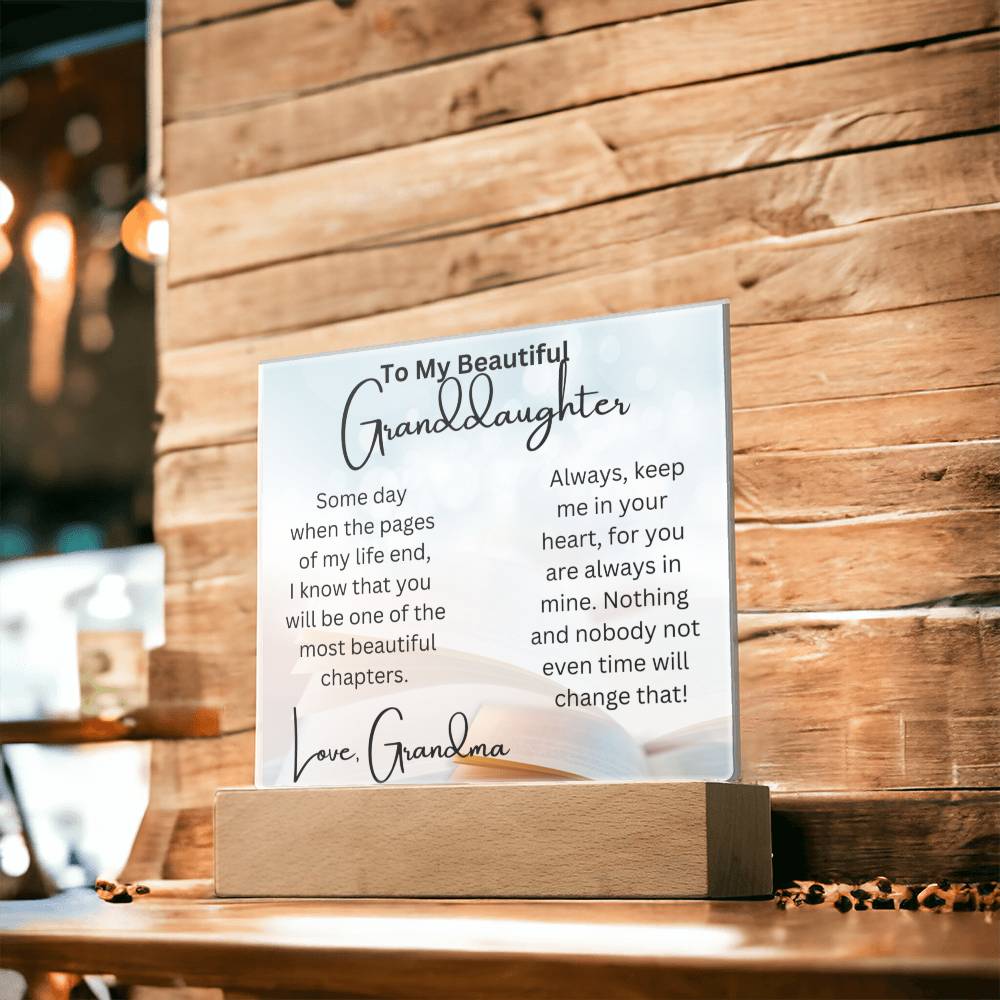 To My Beautiful
Granddaughter
Some day
when the pages
of my life end,
I know that you
will be one of the
most beautiful
chapters.
Always, keep
me in your
heart, for you
are always in
mine. Nothing
and nobody not
even time will
change that!
Love, Grandma